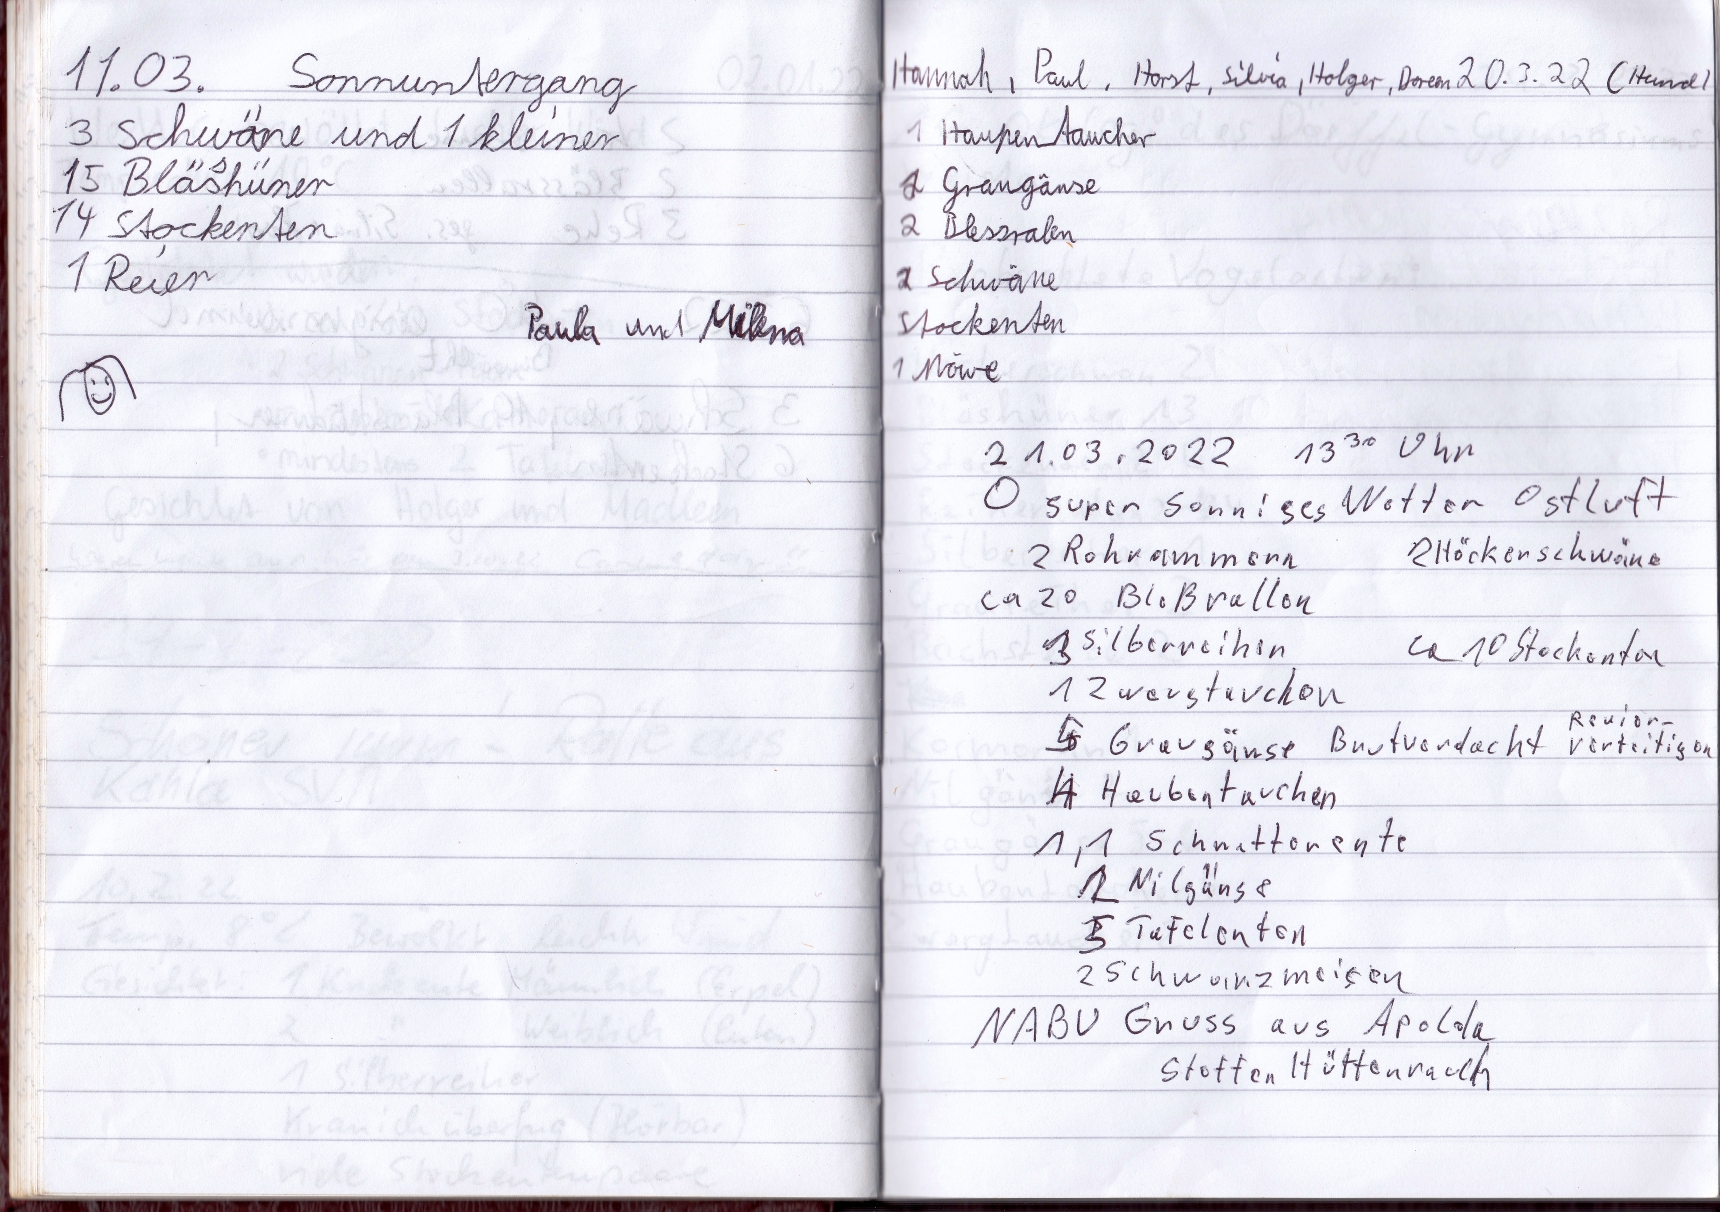 11.03. Sonnuntergang
3 Schwäne und 1 kleiner
15 Bläshüner
14 Stockenten
1 Reier
Paula und Milena
Hannah, Paul, Horst, Silvia, Holger, Doreen 20.3.22 (Hund)
1 Haupentaucher
Graugänse
2 Blessralen
2 Schwäne
Stockenten
1 Möwe
21.03.2022 13³⁰ Uhr
super sonniges Wetter Ostluft
2 Rohrammern 2 Höckerschwäne
ca 20 Bleßrallen
3 Silberreiher ca 10 Stockenten
1 Zwergtaucher
5 Graugänse Brutverdacht Revier-
verteitigen
4 Haubentaucher
1,1 Schnatterente
2 Nilgänse
5 Tafelenten
2 Schwanzmeisen
NABU Gruss aus Apolda
Steffen Hüttenrauch